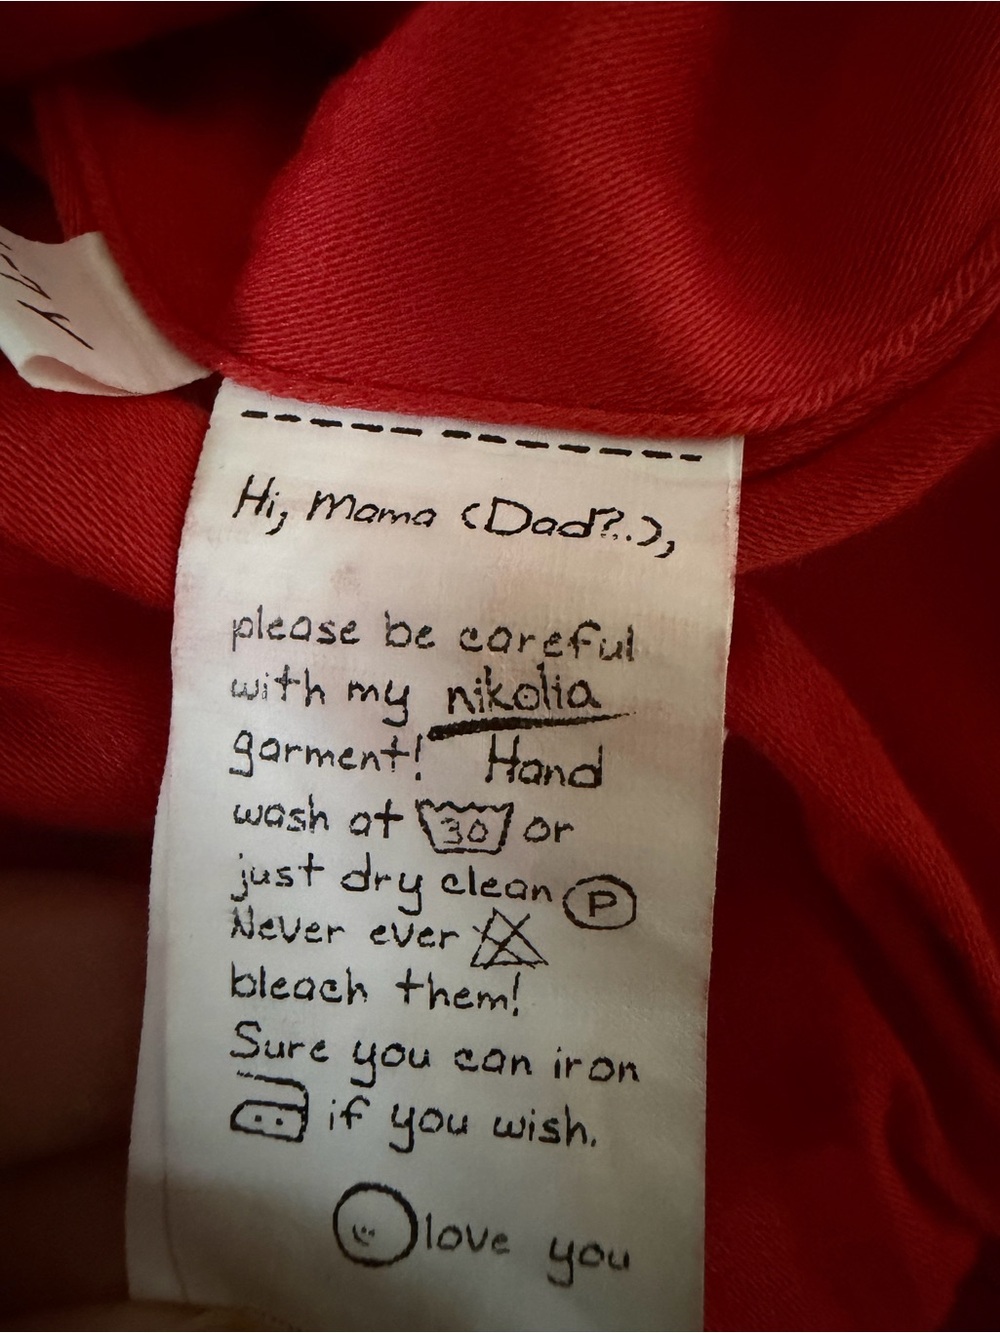 Hi, Mama (Dad?..),
please be careful
with my nikolia
garment! Hand
wash at 30 or
just dry clean P
Never ever
bleach them!
Sure you can iron
if you wish.
love you